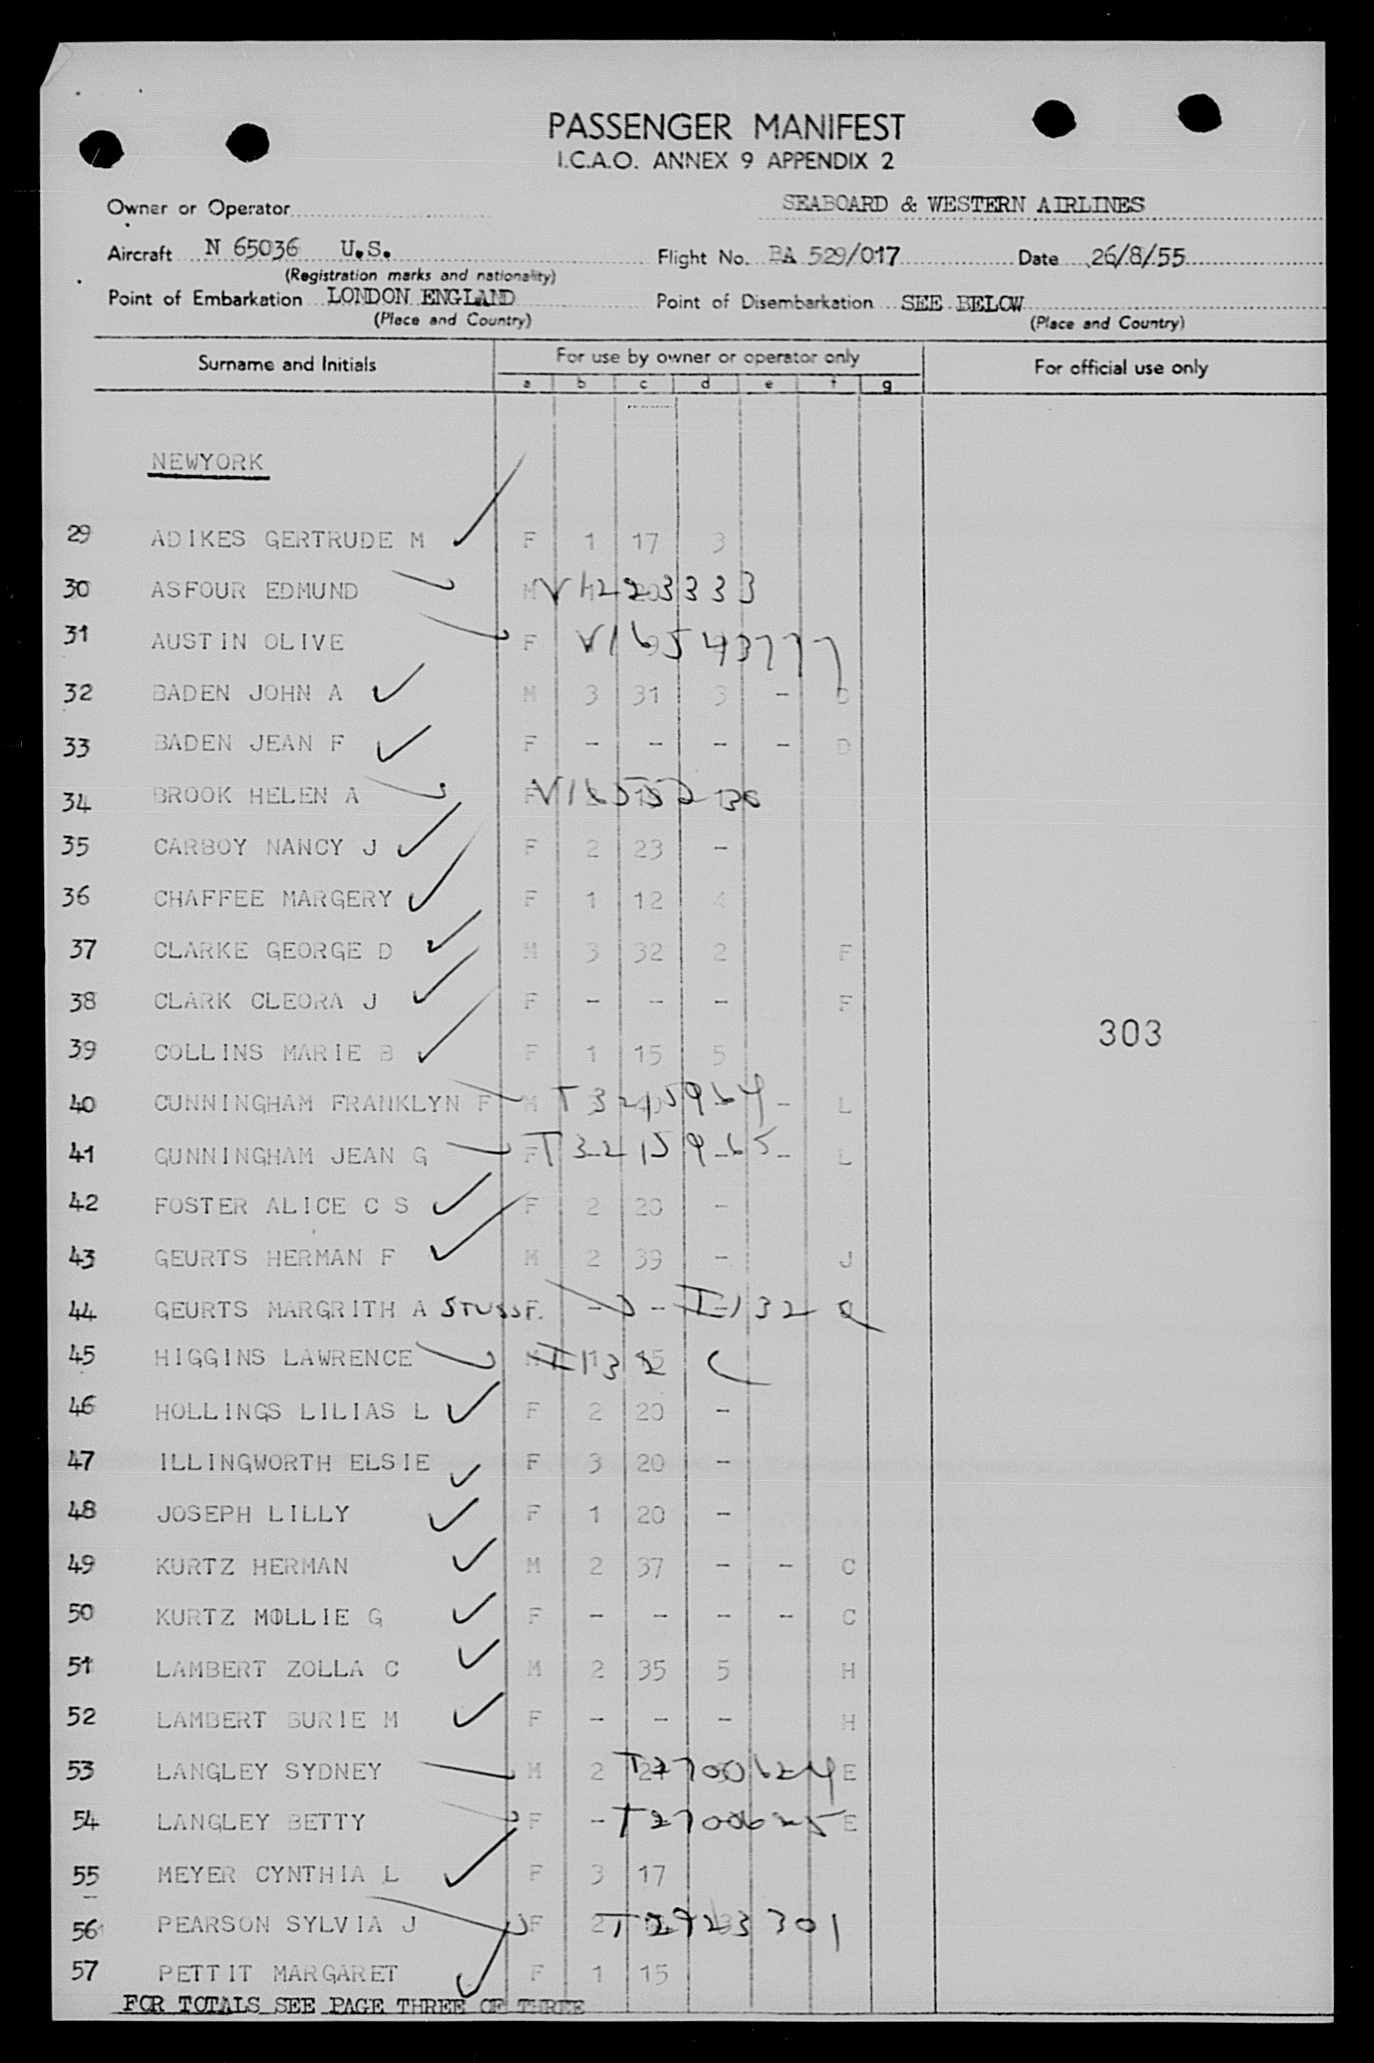 PASSENGER MANIFEST
I.C.A.O. ANNEX 9 APPENDIX 2
Owner or Operator SEABOARD & WESTERN AIRLINES
Aircraft N 65036 U.S. Flight No. BA 529/017 Date 26/8/55
(Registration marks and nationality)
Point of Embarkation LONDON ENGLAND Point of Disembarkation SEE BELOW
(Place and Country) (Place and Country)
Surname and Initials For use by owner or operator only For official use only
a b c d e f g
NEWYORK
29 ADIKES GERTRUDE M F 1 17 3
30 ASFOUR EDMUND M V1223333
31 AUSTIN OLIVE F
32 BADEN JOHN A M 3 31 3 - D
33 BADEN JEAN F F - - - - D
34 BROOK HELEN A F
35 CARBOY NANCY J F 2 23 -
36 CHAFFEE MARGERY F 1 12 4
37 CLARKE GEORGE D M 3 32 2 F
38 CLARK CLEORA J F - - - F
303
39 COLLINS MARIE B F 1 15 5
40 CUNNINGHAM FRANKLYN F M T3215964 - L
41 CUNNINGHAM JEAN G F T3215965 - L
42 FOSTER ALICE C S F 2 20 -
43 GEURTS HERMAN F M 2 39 - J
44 GEURTS MARGRITH A STUSS F. - - I-132
45 HIGGINS LAWRENCE M I 132
46 HOLLINGS LILIAS L F 2 20 -
47 ILLINGWORTH ELSIE F 3 20 -
48 JOSEPH LILLY F 1 20 -
49 KURTZ HERMAN M 2 37 - - C
50 KURTZ MOLLIE G F - - - - C
51 LAMBERT ZOLLA C M 2 35 5 H
52 LAMBERT BURIE M F - - - H
53 LANGLEY SYDNEY M 2 T2700624 E
54 LANGLEY BETTY F - T2700625 E
55 MEYER CYNTHIA L F 3 17
56 PEARSON SYLVIA J F 2 T2723301
57 PETTIT MARGARET F 1 15
FOR TOTALS SEE PAGE THREE OF THREE